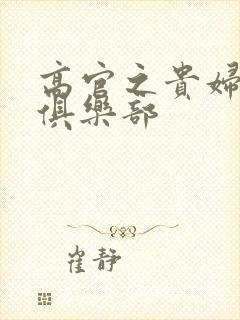 高官之貴婦
俱樂部
崔靜